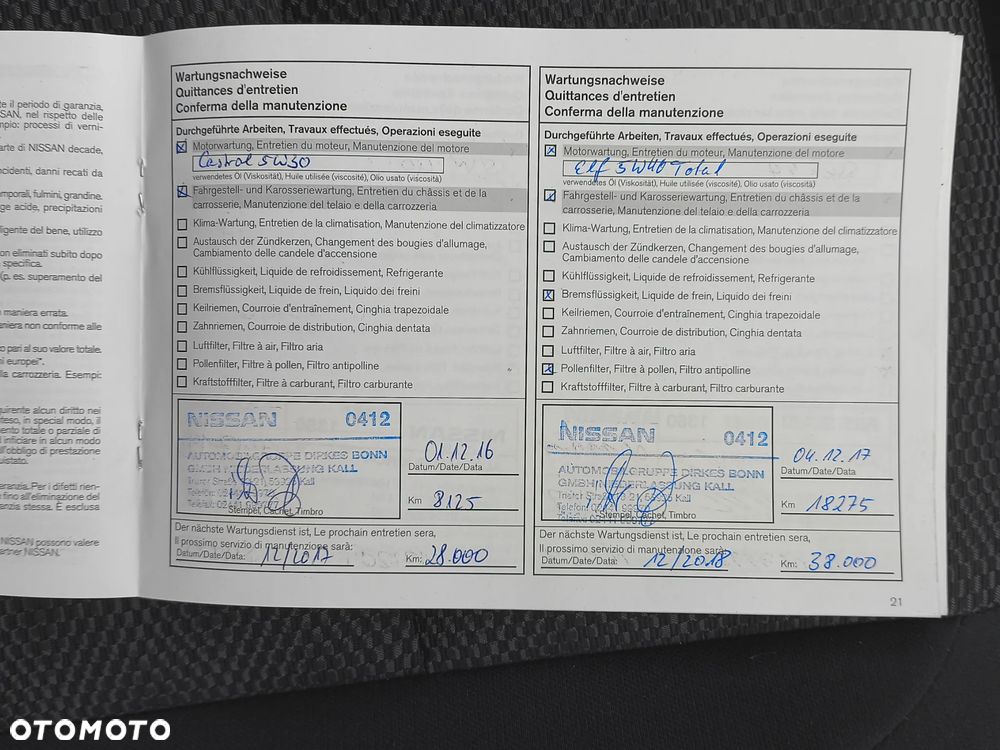 te il periodo di garanzia,
SSAN, nel rispetto delle
mpio: processi di verni-
arte di NISSAN decade,
ncidenti, danni recati da
mporali, fulmini, grandine.
ge acide, precipitazioni
ligente del bene, utilizzo
on eliminati subito dopo
specifica.
(p. es. superamento del
maniera errata.
aniera non conforme alle
o pari al suo valore totale.
ni europei".
lla carrozzeria. Esempi:
quirente alcun diritto nei
teso, in special modo, il
ento totale o parziale di
l inficiare in alcun modo
l'obbligo di prestazione
uistato.
aranzia. Per i difetti rien-
fino all'eliminazione del
anzia stessa. È esclusa
NISSAN possono valere
artner NISSAN.
Wartungsnachweise
Quittances d'entretien
Conferma della manutenzione
Durchgeführte Arbeiten, Travaux effectués, Operazioni eseguite
Motorwartung, Entretien du moteur, Manutenzione del motore
Castrol 5W30
verwendetes Öl (Viskosität), Huile utilisée (viscosité), Olio usato (viscosità)
Fahrgestell- und Karosseriewartung, Entretien du châssis et de la
carrosserie, Manutenzione del telaio e della carrozzeria
Klima-Wartung, Entretien de la climatisation, Manutenzione del climatizzatore
Austausch der Zündkerzen, Changement des bougies d'allumage,
Cambiamento delle candele d'accensione
Kühlflüssigkeit, Liquide de refroidissement, Refrigerante
Bremsflüssigkeit, Liquide de frein, Liquido dei freini
Keilriemen, Courroie d'entraînement, Cinghia trapezoidale
Zahnriemen, Courroie de distribution, Cinghia dentata
Luftfilter, Filtre à air, Filtro aria
Pollenfilter, Filtre à pollen, Filtro antipolline
Kraftstofffilter, Filtre à carburant, Filtro carburante
NISSAN 0412
AUTOMOBILGRUPPE DIRKES BONN
GMBH NIEDERLASSUNG KALL
Stempel, Cachet, Timbro
01.12.16
Datum/Date/Data
Km 8125
Der nächste Wartungsdienst ist, Le prochain entretien sera,
Il prossimo servizio di manutenzione sarà:
Datum/Date/Data: 12/2017 Km: 28.000
Wartungsnachweise
Quittances d'entretien
Conferma della manutenzione
Durchgeführte Arbeiten, Travaux effectués, Operazioni eseguite
Motorwartung, Entretien du moteur, Manutenzione del motore
Elf 5W40 Total
verwendetes Öl (Viskosität), Huile utilisée (viscosité), Olio usato (viscosità)
Fahrgestell- und Karosseriewartung, Entretien du châssis et de la
carrosserie, Manutenzione del telaio e della carrozzeria
Klima-Wartung, Entretien de la climatisation, Manutenzione del climatizzatore
Austausch der Zündkerzen, Changement des bougies d'allumage,
Cambiamento delle candele d'accensione
Kühlflüssigkeit, Liquide de refroidissement, Refrigerante
Bremsflüssigkeit, Liquide de frein, Liquido dei freini
Keilriemen, Courroie d'entraînement, Cinghia trapezoidale
Zahnriemen, Courroie de distribution, Cinghia dentata
Luftfilter, Filtre à air, Filtro aria
Pollenfilter, Filtre à pollen, Filtro antipolline
Kraftstofffilter, Filtre à carburant, Filtro carburante
NISSAN 0412
AUTOMOBILGRUPPE DIRKES BONN
GMBH NIEDERLASSUNG KALL
Stempel, Cachet, Timbro
04.12.17
Datum/Date/Data
Km 18275
Der nächste Wartungsdienst ist, Le prochain entretien sera,
Il prossimo servizio di manutenzione sarà:
Datum/Date/Data: 12/2018 Km: 38.000
21
OTOMOTO